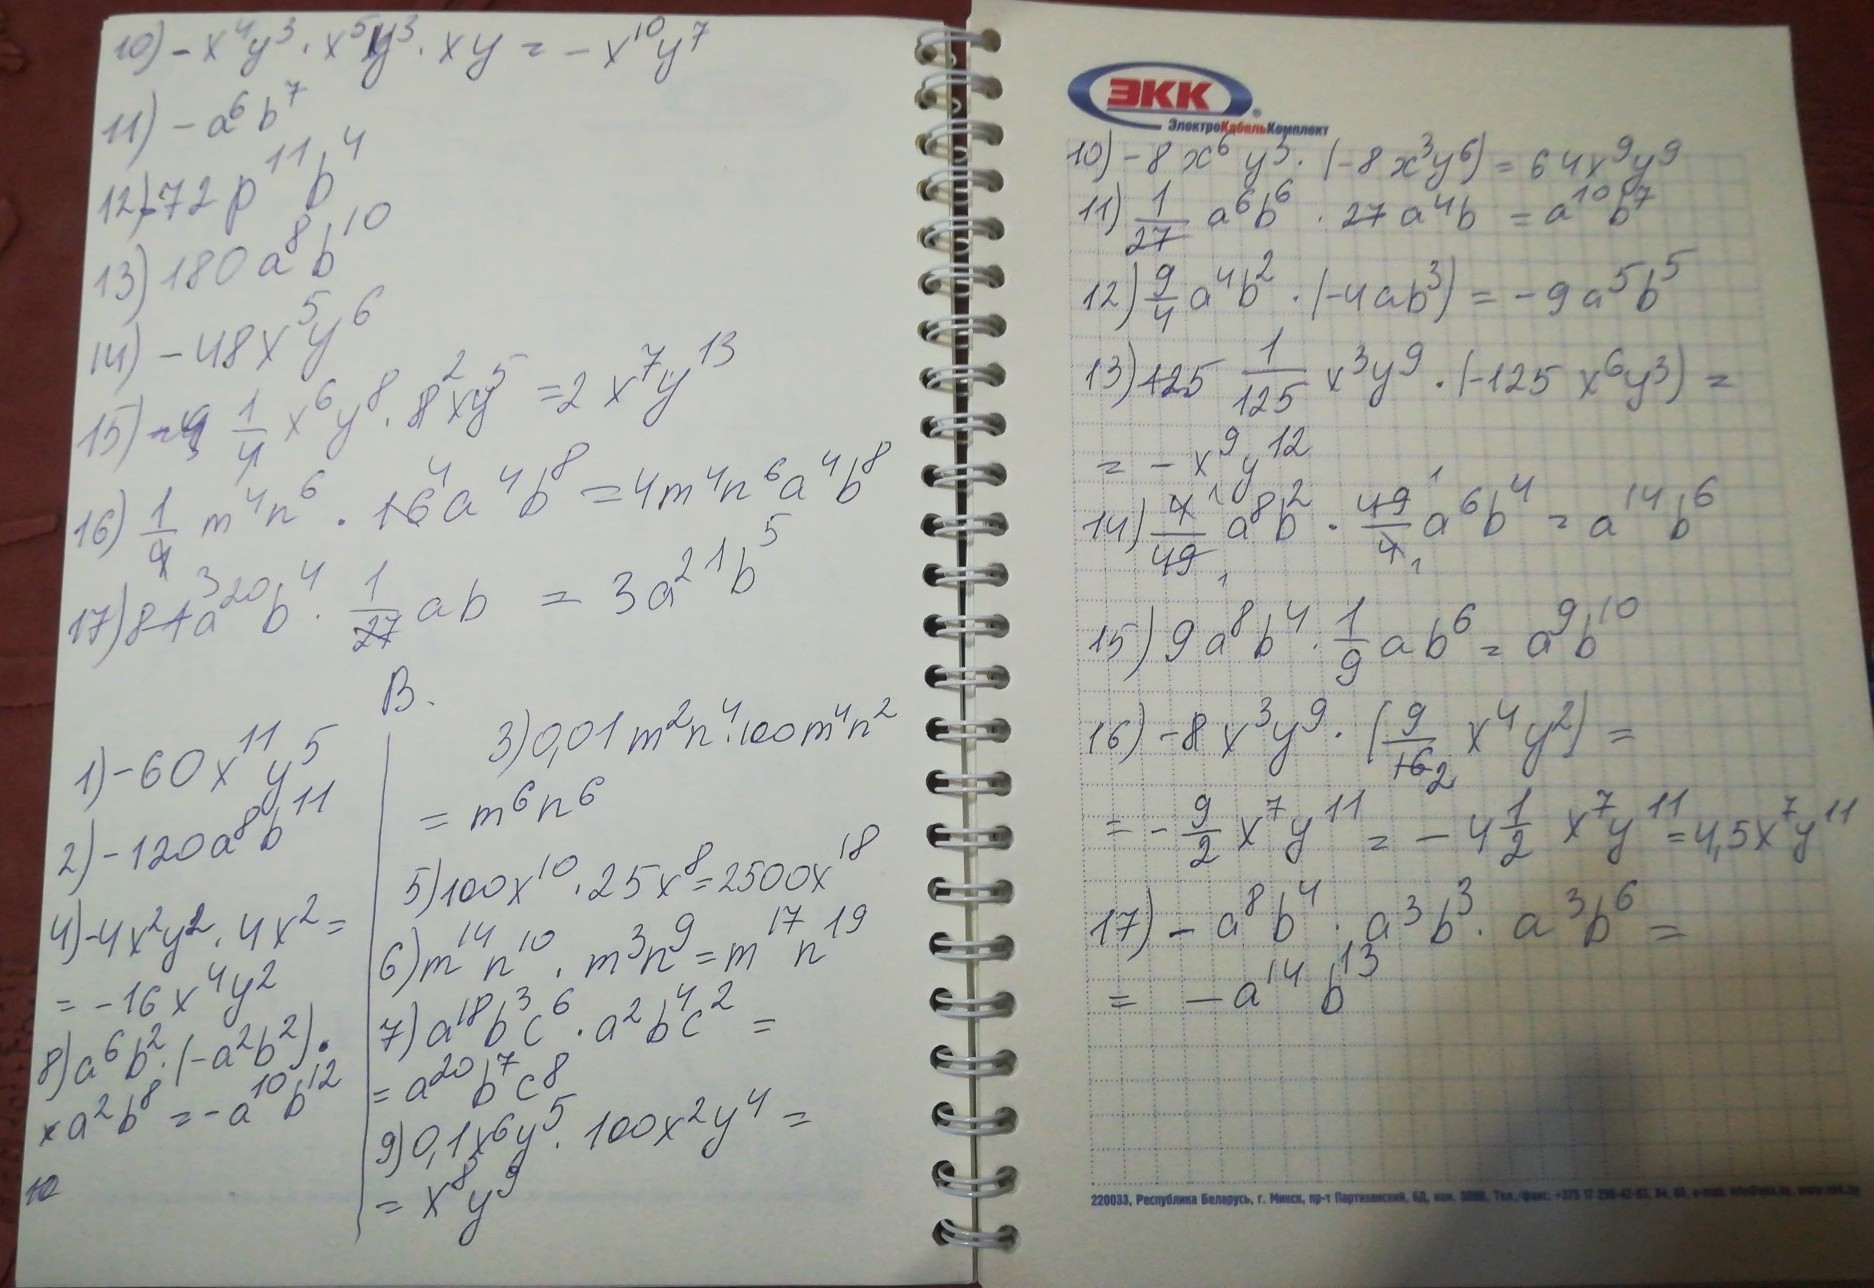 10) - x⁴y³ · x⁵y³ · xy = - x¹⁰y⁷
11) - a⁶b⁷
12) -72p¹¹b⁴
13) 180a⁸b¹⁰
14) - 48x⁵y⁶
15) 1/4 x⁶y⁸ · 8² xy⁵ = 2 x⁷y¹³
16) 1/4 m⁴n⁶ · 16⁴ a⁴b⁸ = 4m⁴n⁶a⁴b⁸
17) 81³ a²⁰b⁴ · 1/27 ab = 3a²¹b⁵
В.
1) -60x¹¹y⁵
2) -120a⁸b¹¹
4) -4x²y² · 4x² =
= -16x⁴y²
8) a⁶b² · (-a²b²) ·
× a²b⁸ = -a¹⁰b¹²
10
3) 0,01m²n⁴ · 100m⁴n²
= m⁶n⁶
5) 100x¹⁰ · 25x⁸ = 2500x¹⁸
6) m¹⁴n¹⁰ · m³n⁹ = m¹⁷n¹⁹
7) a¹⁸b³c⁶ · a²b⁴c² =
= a²⁰b⁷c⁸
9) 0,1x⁶y⁵ · 100x²y⁴ =
= x⁸y⁹
ЭКК
®
ЭлектроКабельКомплект
10) -8x⁶y³ · (-8x³y⁶) = 64x⁹y⁹
11) 1/27 a⁶b⁶ · 27a⁴b = a¹⁰b⁷
12) 9/4 a⁴b² · (-4ab³) = -9a⁵b⁵
13) 125 1/125 x³y⁹ · (-125x⁶y³) =
= - x⁹y¹²
14) 4 1/49 1 a⁸b² · 49 1/4 1 a⁶b⁴ = a¹⁴b⁶
15) 9a⁸b⁴ · 1/9 ab⁶ = a⁹b¹⁰
16) -8x³y⁹ · (9/16 2 x⁴y²) =
= - 9/2 x⁷y¹¹ = - 4 1/2 x⁷y¹¹ = 4,5x⁷y¹¹
17) - a⁸b⁴ · a³b³ · a³b⁶ =
= - a¹⁴b¹³
220033, Республика Беларусь, г. Минск, пр-т Партизанский, 6Д, ком. Тел./факс: +375 17